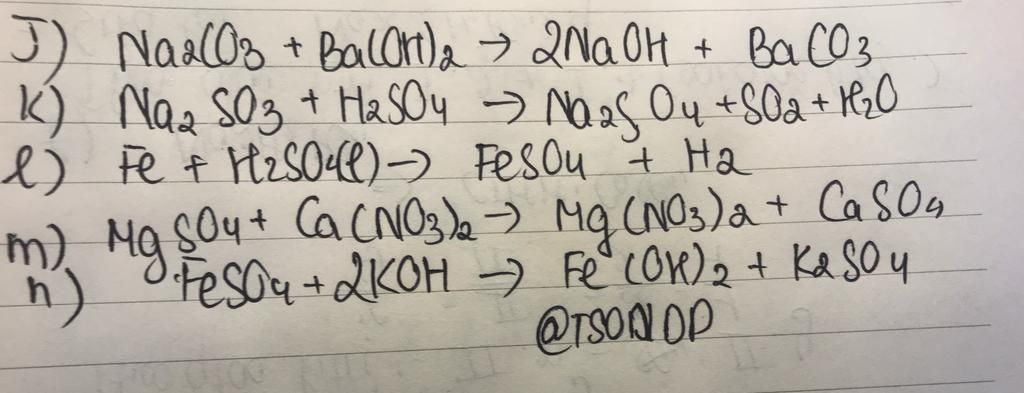 J) Na2CO3 + Ba(OH)2 → 2NaOH + BaCO3
k) Na2SO3 + H2SO4 → Na2SO4 + SO2 + H2O
l) Fe + H2SO4(l) → FeSO4 + H2
m) MgSO4 + Ca(NO3)2 → Mg(NO3)2 + CaSO4
n) FeSO4 + 2KOH → Fe(OH)2 + K2SO4